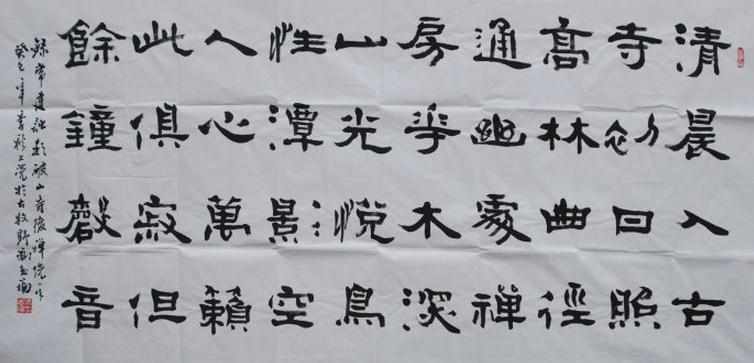 清晨入古
寺初日照
高林曲徑
通幽處禪
房花木深
山光悅鳥
性潭影空
人心萬籟
此俱寂但
餘鐘磬音
錄常建詩題破山寺後禪院
癸巳年 於古牧野